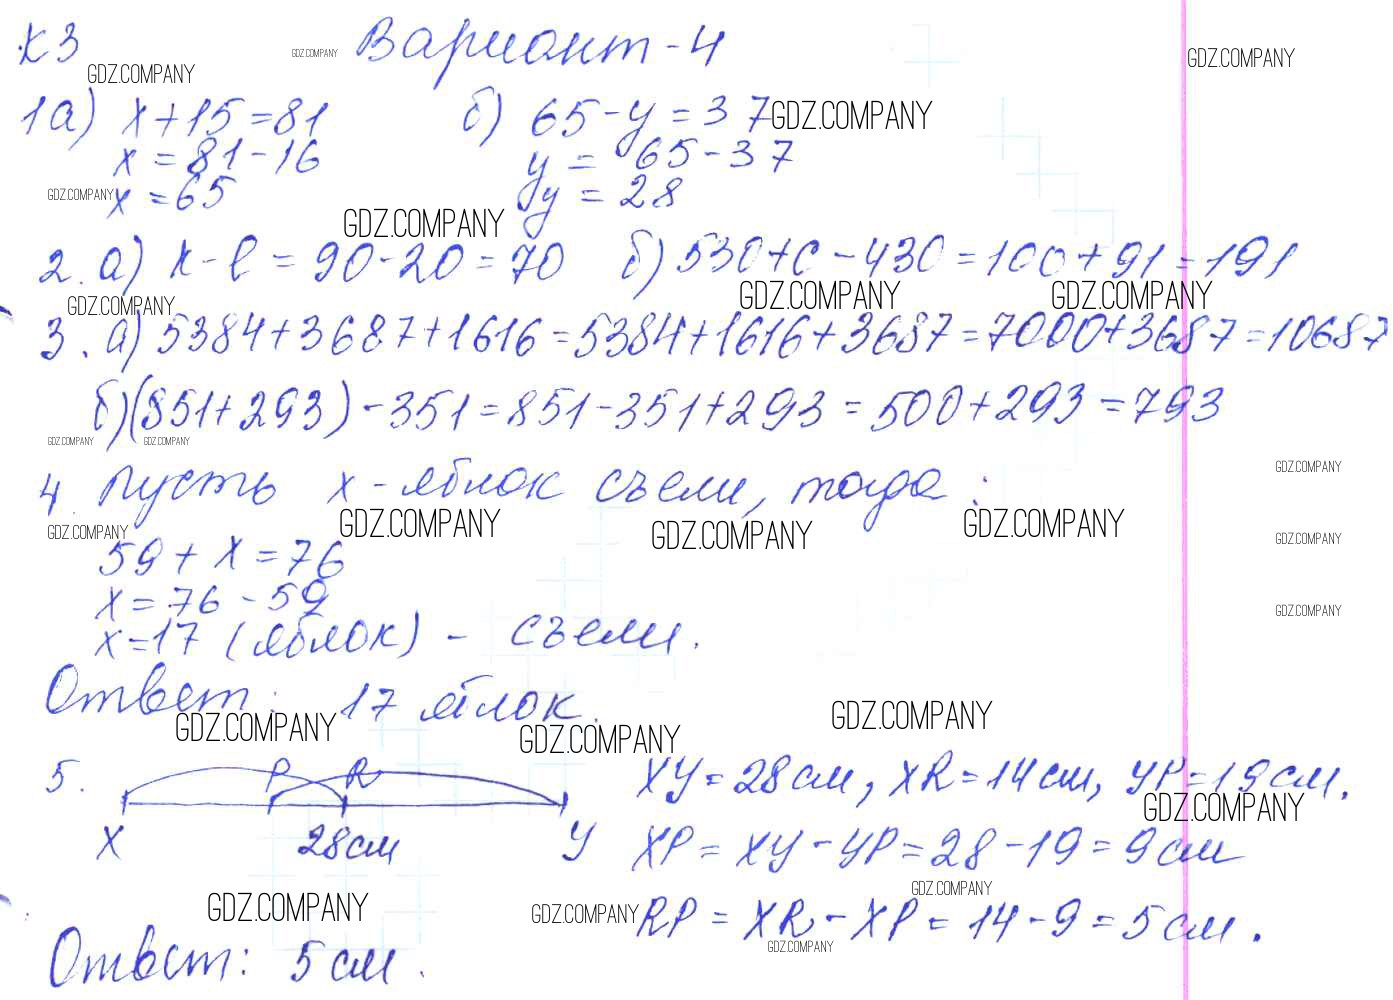 К3 Вариант-4
GDZ.COMPANY GDZ.COMPANY GDZ.COMPANY
1а) x+15=81 б) 65-y=37 GDZ.COMPANY
x=81-16 y=65-37
GDZ.COMPANY x=65 y=28
GDZ.COMPANY
2. а) k-l=90-20=70 б) 530+c-430=100+91=191
GDZ.COMPANY GDZ.COMPANY GDZ.COMPANY
3. а) 5384+3687+1616=5384+1616+3687=7000+3687=10687
б) (851+293)-351=851-351+293=500+293=793
GDZ.COMPANY GDZ.COMPANY GDZ.COMPANY
4. Пусть x-яблок съели, тогда:
GDZ.COMPANY GDZ.COMPANY GDZ.COMPANY GDZ.COMPANY GDZ.COMPANY
59+x=76
x=76-59 GDZ.COMPANY
x=17 (яблок) - съели.
Ответ: 17 яблок.
GDZ.COMPANY GDZ.COMPANY GDZ.COMPANY
5. P R XY=28см, XR=14см, YP=19см.
GDZ.COMPANY
X 28см Y XP=XY-YP=28-19=9см
GDZ.COMPANY
GDZ.COMPANY GDZ.COMPANY RP=XR-XP=14-9=5см.
GDZ.COMPANY
Ответ: 5см.